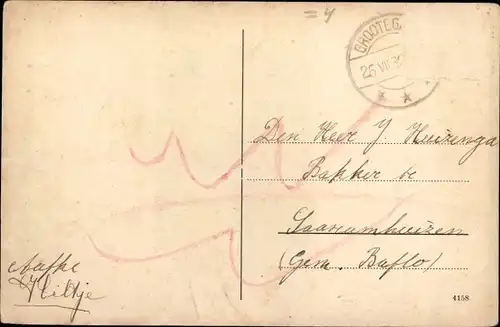 = y
GROOTEG
26 VII 3
Den Heer J Huizenga
Bakker te
Saaxumhuizen
(Gem. Baflo)
Aafke
Hiltje
4158